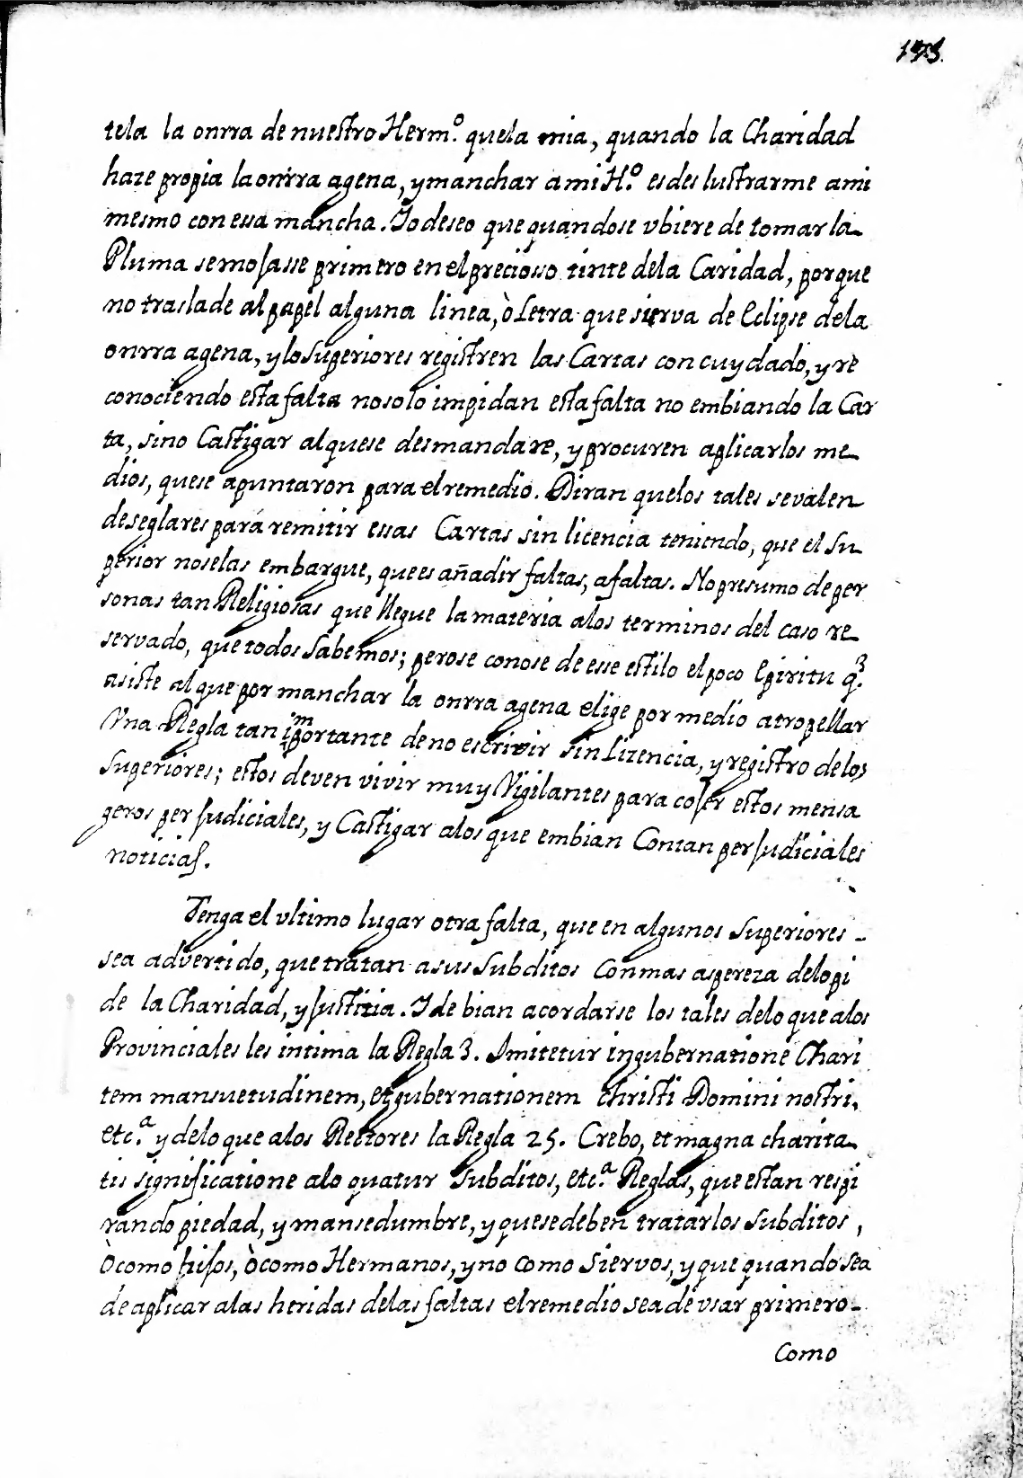 tela la onrra de nuestro Herm.º quela mia, quando la Charidad
haze propia la onrra agena, y manchar a mi H.º es deslustrarme ami
mesmo con esa mancha. Yo deseo que quando se vbiere de tomar la
Pluma se mojasse primero en el precioso tinte dela Caridad, porque
no traslade al papel alguna linea, ò Letra que sierva de Eclipse dela
onrra agena, y lo superiores registren las Cartas con cuydado, y re
conociendo esta falta no solo impidan esta falta no embiando la Car
ta, sino Castigar al que se desmandare, y procuren aplicar los me
dios, que se apuntaron para el remedio. Diran que los tales se valen
de seglares para remitir essas Cartas sin licencia teniendo, que el Su
perior no selas embargue, que es añadir faltas, a faltas. No presumo de per
sonas tan Religiosas que llegue la materia alos terminos del caso re
servado, que todos sabemos; pero se conose de esse estilo el poco Espiritu q.³
asiste al que por manchar la onrra agena elige por medio atropellar
Vna Regla tan importante de no escrivir sin Lizencia, y registro de los
Superiores; estos deven vivir muy Vigilantes para cojer estos mensa
geros perjudiciales, y Castigar alos que embian Con tan perjudiciales
noticias.
Tenga el vltimo lugar otra falta, que en algunos Superiores
sea advertido, que tratan a sus subditos con mas aspereza delo pi
de la Charidad, y justitia. Y de bian acordarse los tales delo que alos
Provinciales les intima la Regla 3. Imitetur in gubernatione Chari
tem mansuetudinem, et gubernationem christi Domini nostri,
etc.ª y delo que alos Rectores la Regla 25. Crebo, et magna charita
tis significatione alo quatur subditos, etc.ª Reglas, que estan respi
rando piedad, y mansedumbre, y que se deben tratar los Subditos,
Ò como hijos, ò como Hermanos, y no como siervos, y que quando sea
de aplicar alas heridas delas faltas el remedio sea de vsar primero
Como